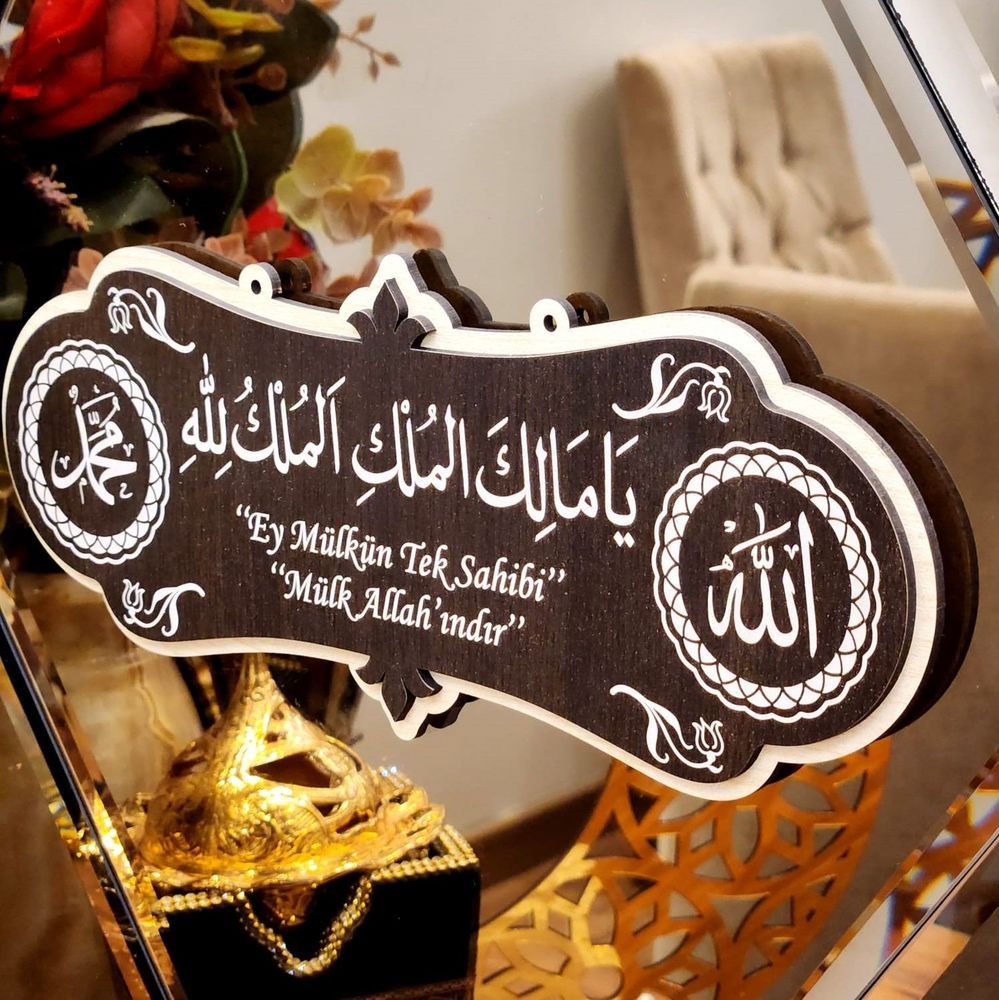 الله
يَا مَالِكَ الْمُلْكِ اَلْمُلْكُ لِلّٰهِ
محمد
“Ey Mülkün Tek Sahibi”
“Mülk Allah’ındır”